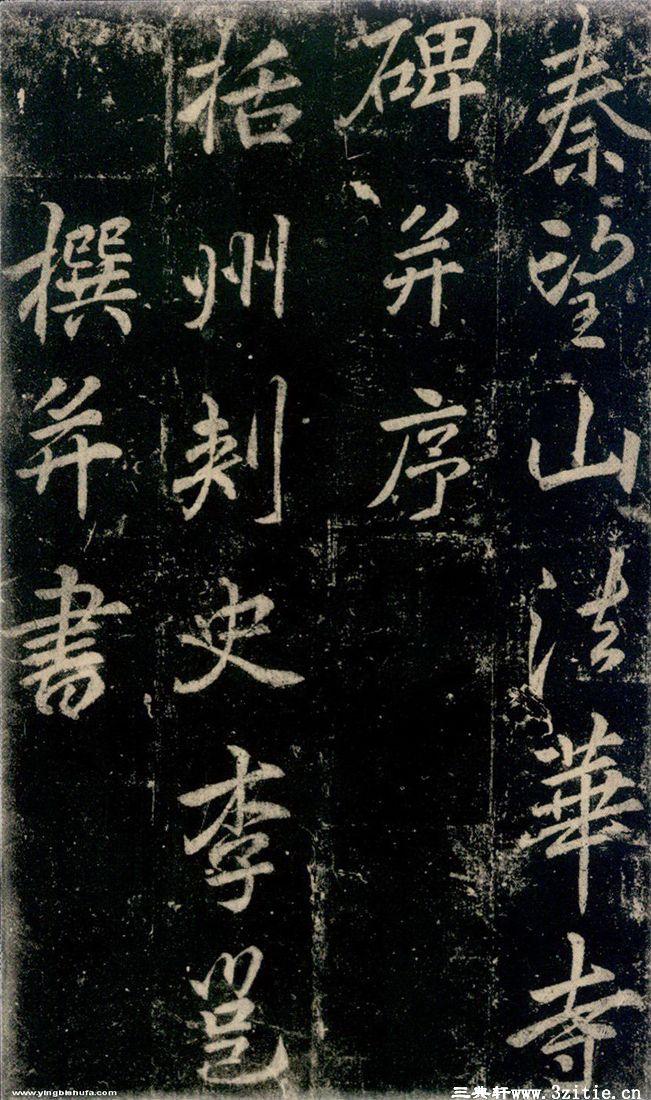 秦望山法華寺
碑并序
括州刺史李邕
撰并書
www.yingbishufa.com
三典轩www.3zitie.cn